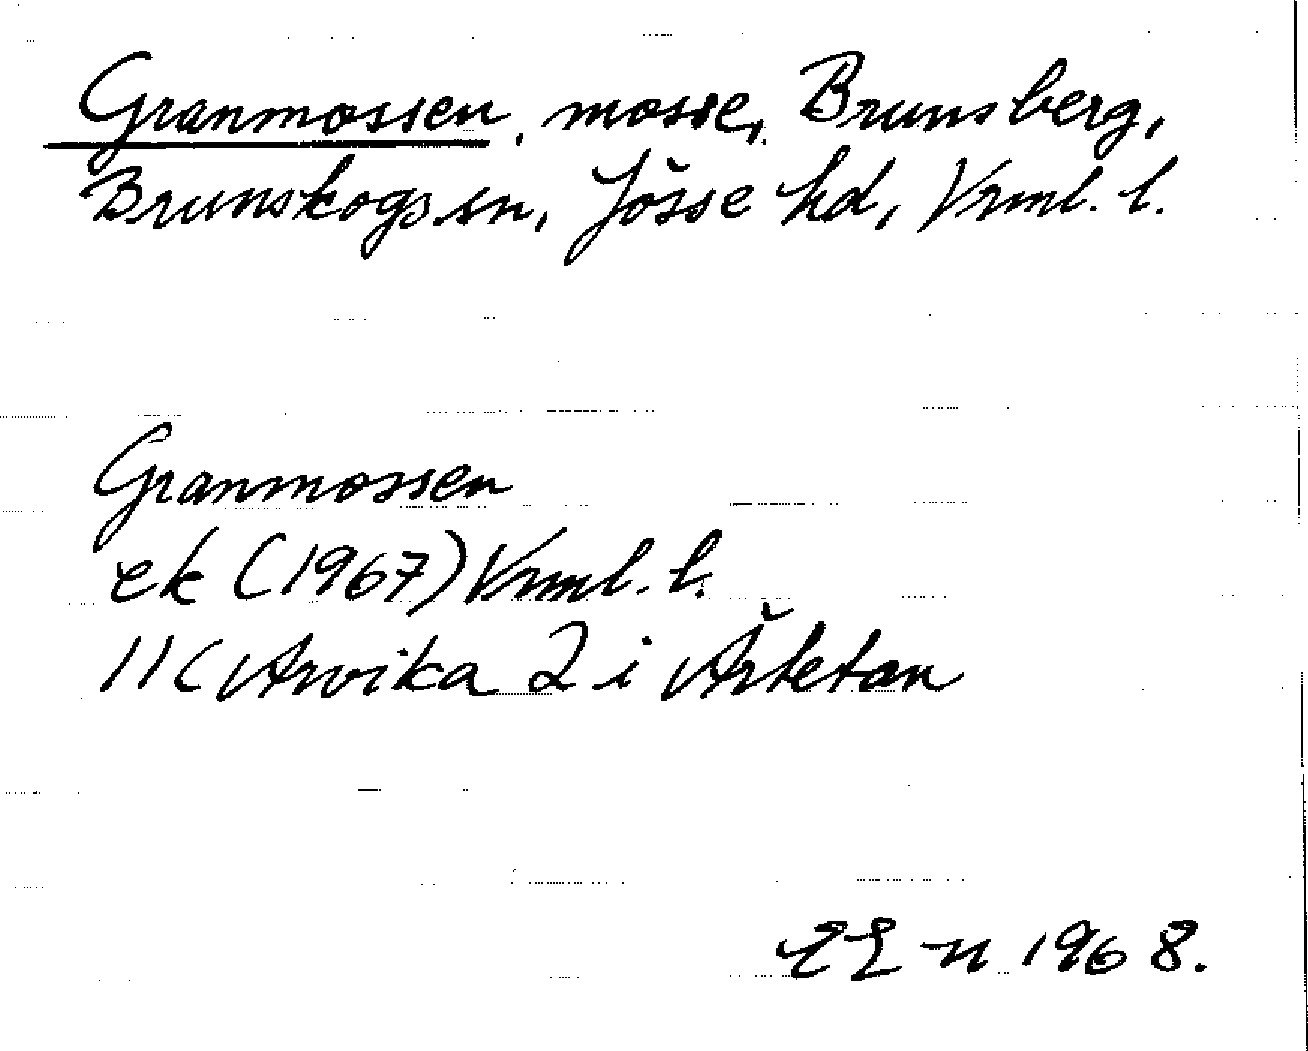 Granmossen, mosse, Brunsberg,
Brunskogs sn, Jösse hd, Vrml. l.
Granmossen
ek (1967) Vrml. l.
11C Arvika 2 i Årbetan
EL n 1968.